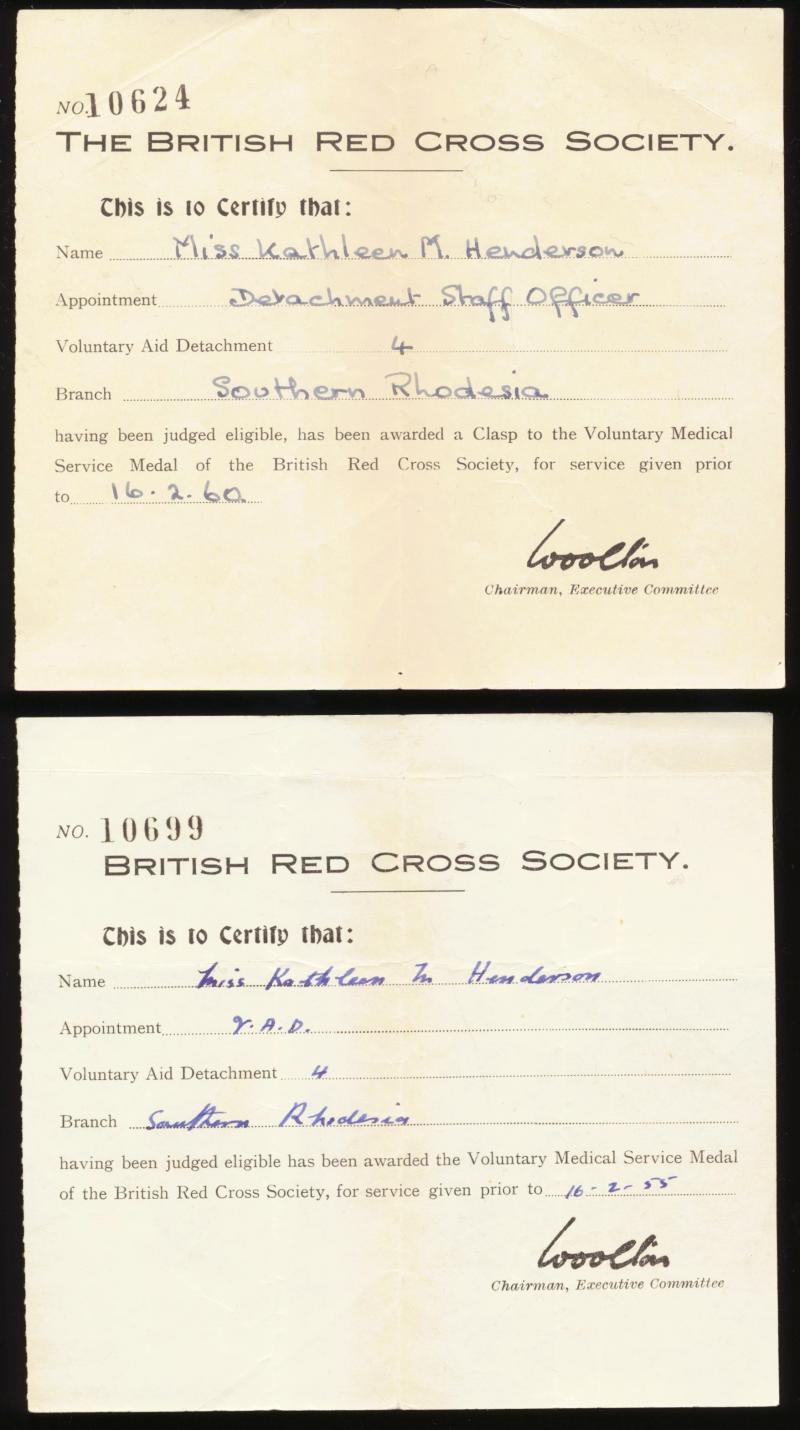 NO. 10624
THE BRITISH RED CROSS SOCIETY.
This is to Certify that:
Name Miss Kathleen M. Henderson
Appointment Detachment Staff Officer
Voluntary Aid Detachment 4
Branch Southern Rhodesia
having been judged eligible, has been awarded a Clasp to the Voluntary Medical
Service Medal of the British Red Cross Society, for service given prior
to 16.2.60
Woolton
Chairman, Executive Committee
NO. 10699
BRITISH RED CROSS SOCIETY.
This is to Certify that:
Name Miss Kathleen M Henderson
Appointment V.A.D.
Voluntary Aid Detachment 4
Branch Southern Rhodesia
having been judged eligible has been awarded the Voluntary Medical Service Medal
of the British Red Cross Society, for service given prior to 16-2-55
Woolton
Chairman, Executive Committee